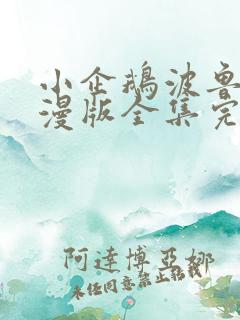 小企鹅波鲁
漫版全集完
阿達博亞娜
未经同意禁止转载